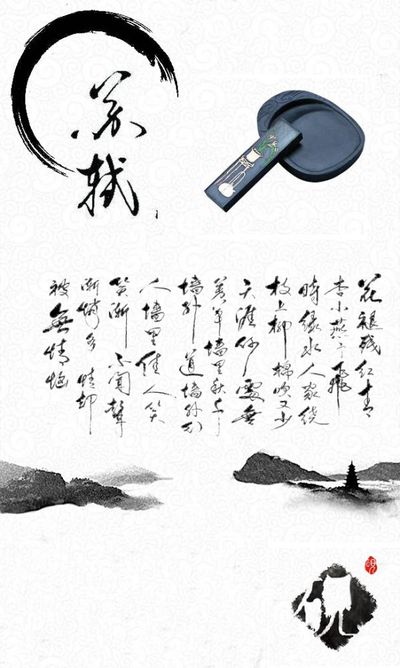 苏轼
花褪残红青
杏小燕子飛
時绿水人家绕
枝上柳棉吹又少
天涯何处無
芳草墙里秋千
墙外道墙外行
人墙里佳人笑
笑渐不闻聲
渐悄多情却
被無情恼